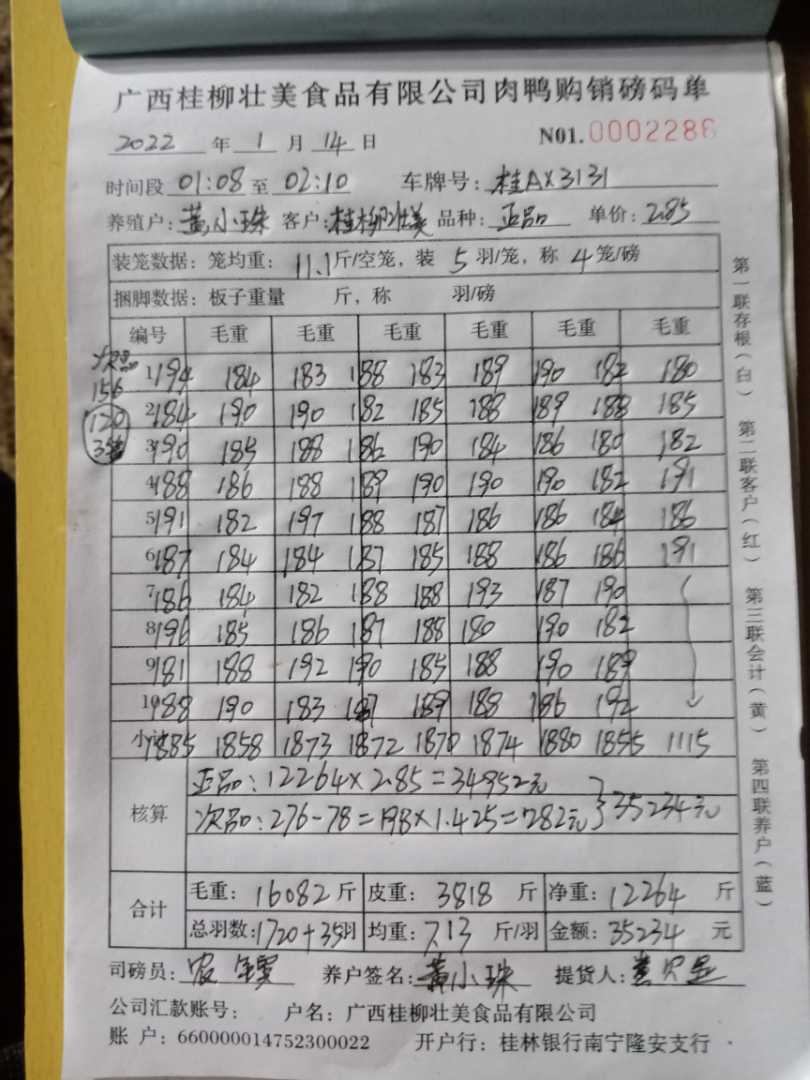 广西桂柳壮美食品有限公司肉鸭购销磅码单
2022 年 1 月 14 日 N01.0002286
时间段 01:08 至 02:10 车牌号: 桂AX3131
养殖户: 黄小珠 客户: 桂柳壮美 品种: 正品 单价: 2.85
装笼数据: 笼均重: 11.1斤/空笼, 装 5 羽/笼, 称 4 笼/磅
捆脚数据: 板子重量 斤, 称 羽/磅
编号 毛重 毛重 毛重 毛重 毛重 毛重
次品
156
120
35
1 194 184 183 188 183 189 190 182 180
2 184 190 190 182 185 188 189 188 185
3 190 185 188 186 190 184 186 180 182
4 188 186 188 189 190 190 190 182 191
5 191 182 197 188 187 186 186 184 186
6 187 184 184 187 185 188 186 186 191
7 186 184 182 188 188 193 187 190
8 196 185 186 187 188 180 190 182
9 181 188 192 190 185 188 190 189
10 188 190 183 187 189 188 186 192
小计 1885 1858 1873 1872 1870 1874 1880 1855 1115
核算
正品: 12264×2.85=34952元
次品: 276-78=198×1.425=282元 } 35234元
合计
毛重: 16082 斤 皮重: 3818 斤 净重: 12264 斤
总羽数: 1720+35羽 均重: 7.13 斤/羽 金额: 35234 元
司磅员: 农 养户签名: 黄小珠 提货人:
公司汇款账号: 户名: 广西桂柳壮美食品有限公司
账 户: 660000014752300022 开户行: 桂林银行南宁隆安支行
第一联存根(白) 第二联客户(红) 第三联会计(黄) 第四联养户(蓝)